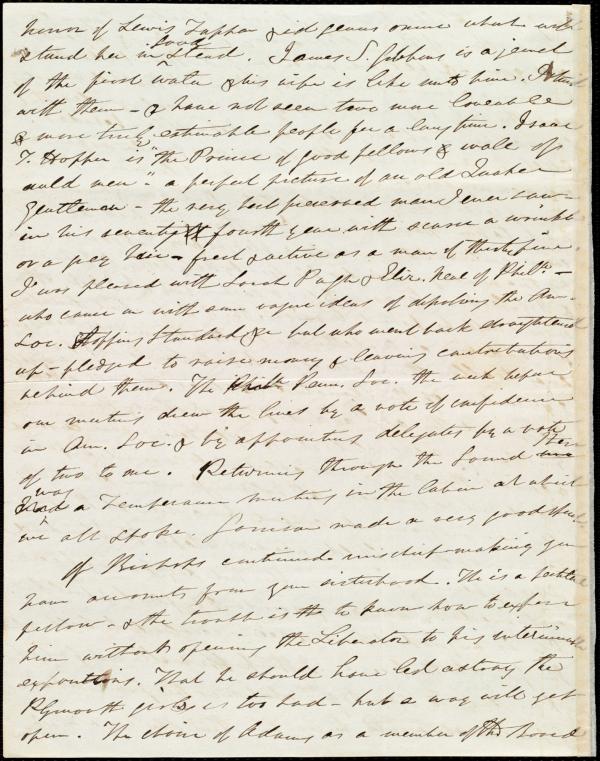 honor of Lewis Tappan & id genus omne what will
stand her in good Stead. James S. Gibbons is a jewel
of the first water & his wife is like unto him.
with them – & have not seen two more loveable
& more truly estimable people for a long time. Isaac
T. Hopper is "the Prince of good fellows & wale of
auld men" – a perfect picture of an old Quaker
Gentleman – the very best preserved man I ever saw –
in his seventy fourth year with scarce a wrinkle
or a grey hair – fresh & active as a man of thirty five.
I was pleased with Sarah Pugh & Eliz. Neal of Phila –
who came on with some vague ideas of deposing the Am.
Soc. Stopping Standard &c but who went back straightened
up – pledged to raise money & leaving contributions
behind them. The Penn. Soc. the week before
our meeting drew the lines by a vote of confidence
in Am. Soc. & by appointing delegates by a vote
of two to one. Returning through the Sound there
was a Temperance meeting in the Cabin at which
we all spoke. Louisa made a very good
Of Bishops continued mischief-making you
have accounts from your sisterhood. He is a
fellow – & the trouble is to know how to expose
him without opening the Liberator to his interminable
expositions. That he should have led astray the
Plymouth girls is too bad – but a way will get
open. The choice of Adams as a member of the Board